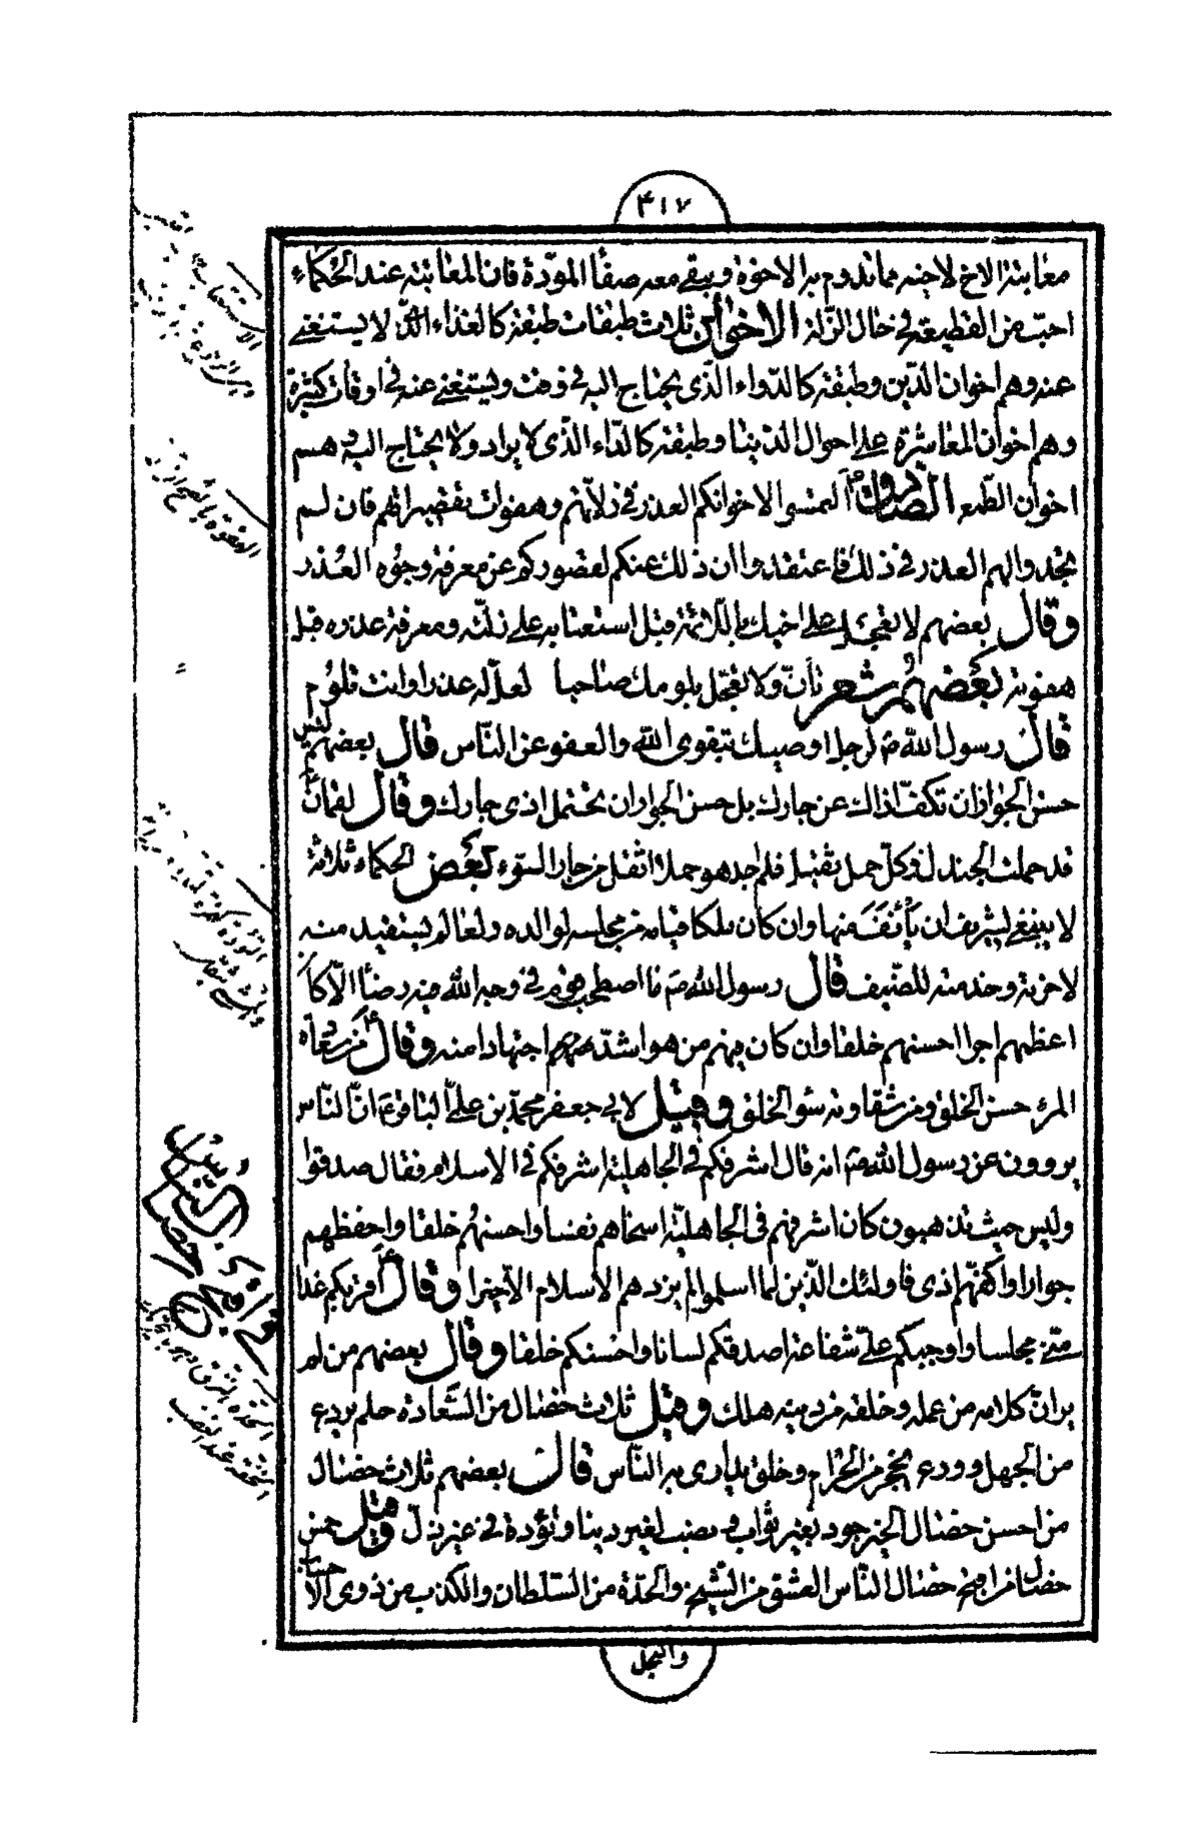 ۴۱۷
معاتبة الاخ لاخيه مما تدوم به الاخوة ويبقى معه صفاء المودّة فان المعاتبة عند الحكماء
احبّ من القطيعة فى حال الزلة الاخوان ثلاث طبقات طبقة كالغذاء الذى لا يستغنى
عنه وهم اخوان الدّين وطبقة كالدّواء الّذى يحتاج اليه فى وقت ويستغنى عنه فى اوقات كثيرة
وهم اخوان المعاشرة على احوال الدّنيا وطبقة كالدّاء الّذى لا يراد ولا يحتاج اليه وهم
اخوان الطّمع الصّادق التمسوا لاخوانكم العذر فى زلاتهم وهفوات تقصيراتهم فان لم
تجدوا لهم العذر فى ذلك فاعتقدوا ان ذلك عنكم لقصوركم عن معرفة وجوه العذر
وقال بعضهم لا تعجل على اخيك باللّائمة قبل استعتابه على زلته ومعرفة عذره قبل
هفوته بعضهم شعر تأنّ ولا تعجّل بلومك صاحبا لعلّ له عذرا وانت تلوم
قال رسول الله ص لرجل اوصيك بتقوى الله والعفو عن النّاس قال بعضهم ليس
حسن الجوار ان تكفّ اذاك عن جارك بل حسن الجوار ان تحتمل اذى جارك وقال لقمان
قد حملت الجندل وكلّ حمل ثقيل فلم اجد هو حملا اثقل من جار السّوء بعض الحكماء ثلاثة
لا ينبغى لشريف ان يأنف منها وان كان ملكا قيامه من مجلسه لوالده ولعالم يستفيد منه
لاخرته وخدمته للضّيف قال رسول الله ص ما اصطحب قوم فى وجه الله فيه رضاً الّا كان
اعظمهم اجرا احسنهم خلقا وان كان فيهم من هو اشدّ منهم اجتهادا منه وقال من سعادة
المرء حسن الخلق ومن شقاوته سوء الخلق وقيل لابى جعفر محمّد بن علىّ الباقر ع انّ النّاس
يروون عن رسول الله ص انه قال اشرفكم فى الجاهلية اشرفكم فى الاسلام فقال صدقوا
وليس حيث تذهبون كان اشرفهم فى الجاهليّة اسخاهم نفسا واحسنهم خلقا واحفظهم
جوارا واكفّهم اذى فاولئك الّذين لما اسلموا لم يزدهم الاسلام الّا خيرا وقال اقربكم غدا
منّى مجلسا واوجبكم علىّ شفاعة اصدقكم لسانا واحسنكم خلقا وقال بعضهم من لم
ير انّ كلامه من عمله وخلقه من دينه هلك وقيل ثلاث خصال من السّعادة حلم يردع
من الجهل وورع يحجز من الحرام وخلق يدارى به النّاس قال بعضهم ثلاث خصال
من احسن خصال الخير جود بغير ثواب ونصب لغير دنيا وتؤدة فى غير ذلّ وقيل خمس
خصال من اقبح خصال النّاس العشق من الشّيخ والحدّة من السّلطان والكذب من ذوى الاحساب
والبخل